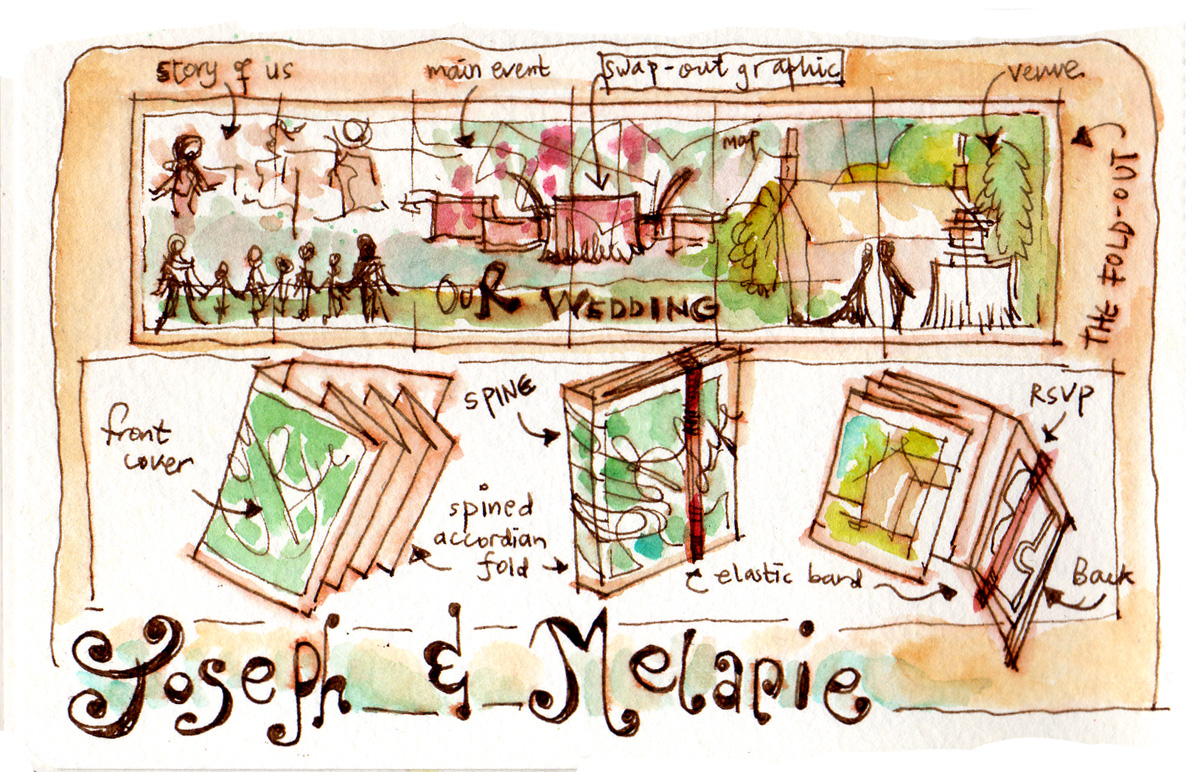 story of us
main event
swap-out graphic
venue
map
THE FOLD-OUT
OUR WEDDING
front
cover
SPINE
spined
accordian
fold
RSVP
elastic band
Back
Joseph & Melanie